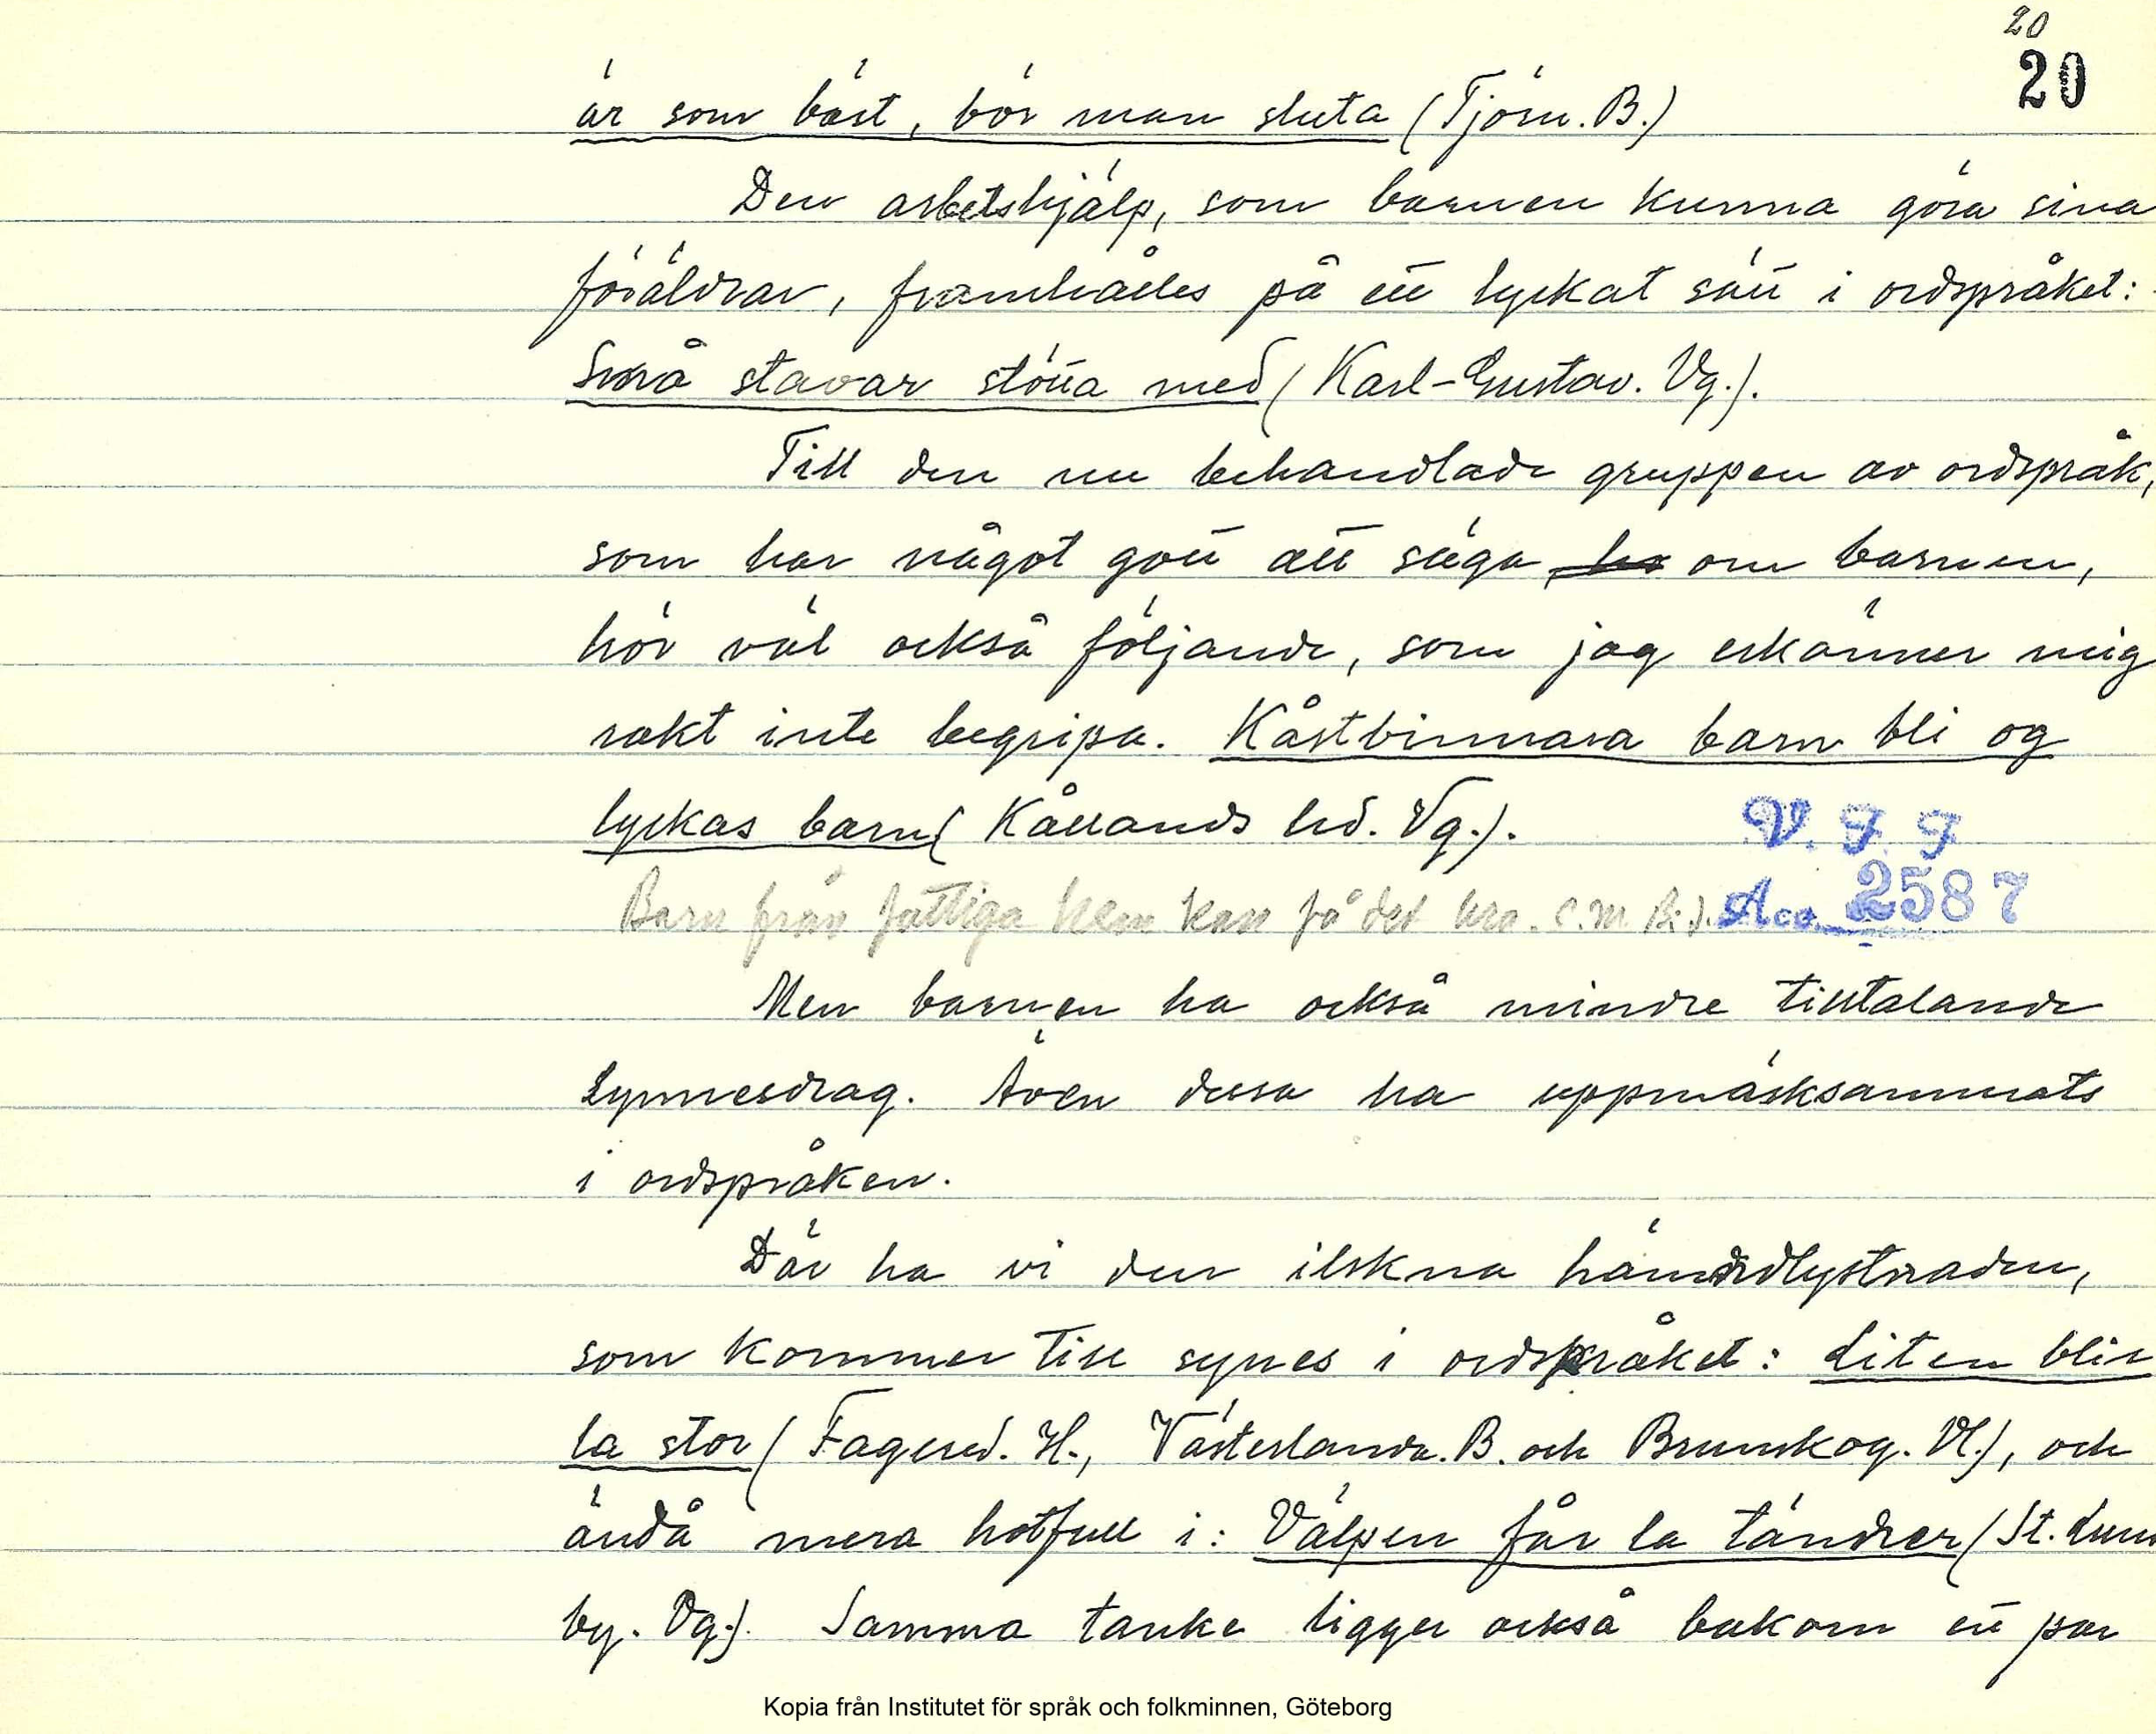 20
20
är som bäst, bör man sluta (Tjörn. B.)
Den arbetshjälp, som barnen kunna göra sina
föräldrar, framhålles på ett lyckat sätt i ordspråket:
Små stavar stötta med (Karl-Gustav. Vg.).
Till den nu behandlade gruppen av ordspråk,
som har något gott att säga om barnen,
hör väl också följande, som jag erkänner mig
rakt inte begripa. Kåstbinnara barn bli og
lyckas barn (Kållands hd. Vg.).
V. F. F
Barn från fattiga hem kan få det bra. C.M. B:j.
Acc. 2587
Men barnen ha också mindre tilltalande
lynnesdrag. Även dessa ha uppmärksammats
i ordspråken.
Där ha vi den ilskna hämndlystnaden,
som kommer till synes i ordspråket: Liten blir
la stor (Fagered. H., Västerlanda. B. och Brunskog. Vl.), och
ändå mera hotfull i: Valpen får la tändrer (St. Lund
by. Vg.). Samma tanke ligger också bakom ett par
Kopia från Institutet för språk och folkminnen, Göteborg